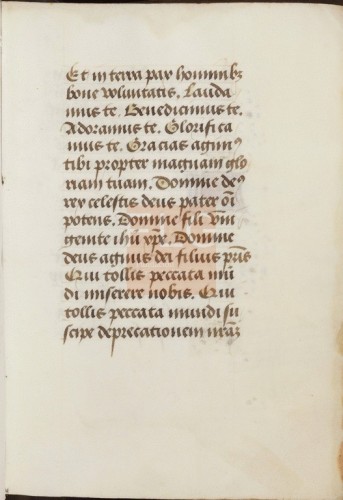 Et in terra pax hominibꝫ
bone voluntatis. Lauda
mus te. Benedicimus te.
Adoramus te. Glorifica
mus te. Gracias agimꝰ
tibi propter magnam glo
riam tuam. Domine deꝰ
rex celestis deus pater oı̄
potens. Domine fili vni
genite ihu xp̄e. Domine
deus agnus dei filius pr̄is
Qui tollis peccata mū
di miserere nobis. Qui
tollis peccata mundi su
scipe deprecationem nr̄aꝫ